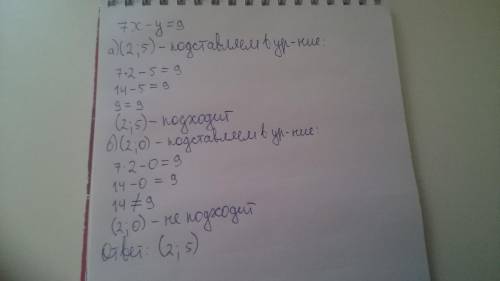 7x-y=9
а)(2;5)-подставляем в ур-ние:
7·2-5=9
14-5=9
9=9
(2;5)-подходит
б)(2;0)-подставляем в ур-ние:
7·2-0=9
14-0=9
14≠9
(2;0)-не подходит
Ответ: (2;5)